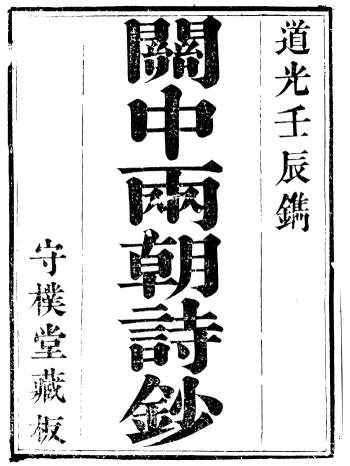 道光壬辰鐫
關中兩朝詩鈔
守樸堂藏板